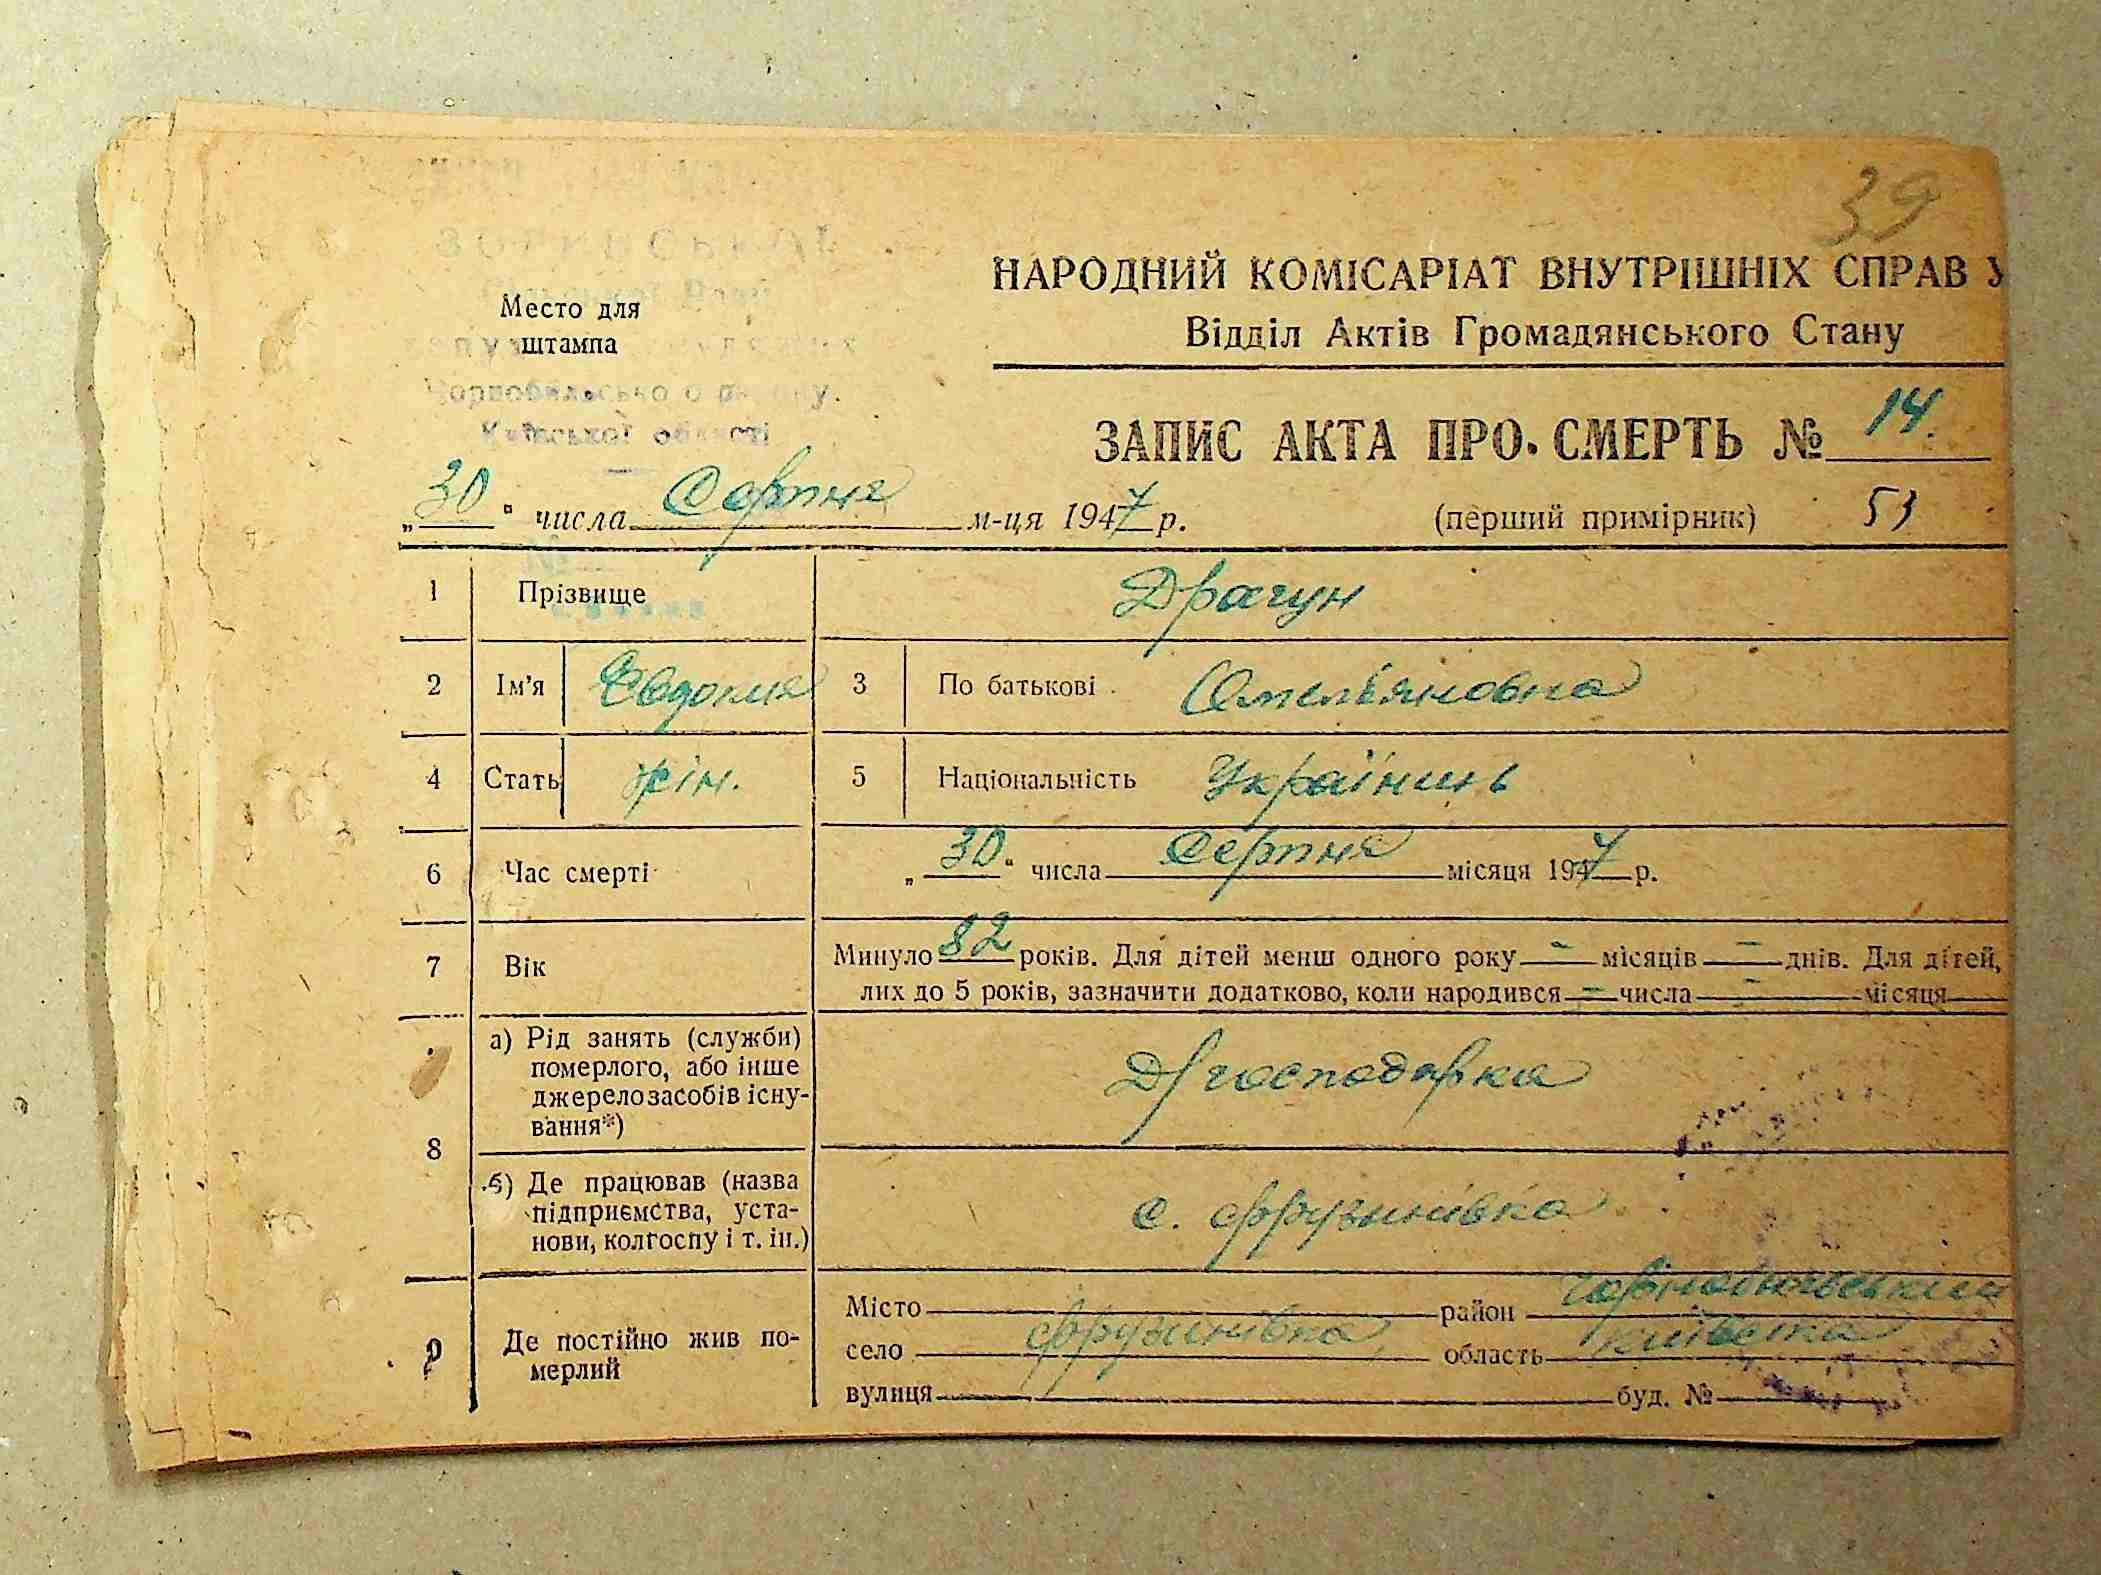 39
НАРОДНИЙ КОМІСАРІАТ ВНУТРІШНІХ СПРАВ У
Відділ Актів Громадянського Стану
Место для
штампа
Чорнобильсько о району.
Київської області
ЗАПИС АКТА ПРО СМЕРТЬ № 14
„30" числа Серпня м-ця 1947 р. (перший примірник) 53
1 Прізвище Драгун
2 Ім'я Євдокия 3 По батькові Омельяновна
4 Стать жін. 5 Національність Українць
6 Час смерті „30" числа Серпня місяця 1947 р.
7 Вік Минуло 82 років. Для дітей менш одного року — місяців — днів. Для дітей,
лих до 5 років, зазначити додатково, коли народився — числа — місяця
8 а) Рід занять (служби)
померлого, або інше
джерело засобів існу-
вання*)
Д/господарка
б) Де працював (назва
підприємства, уста-
нови, колгоспу і т. ін.)
с. Фрузинівка
9 Де постійно жив по-
мерлий
Місто район Чорнобильський
село Фрузинівка область Київська
вулиця буд. №